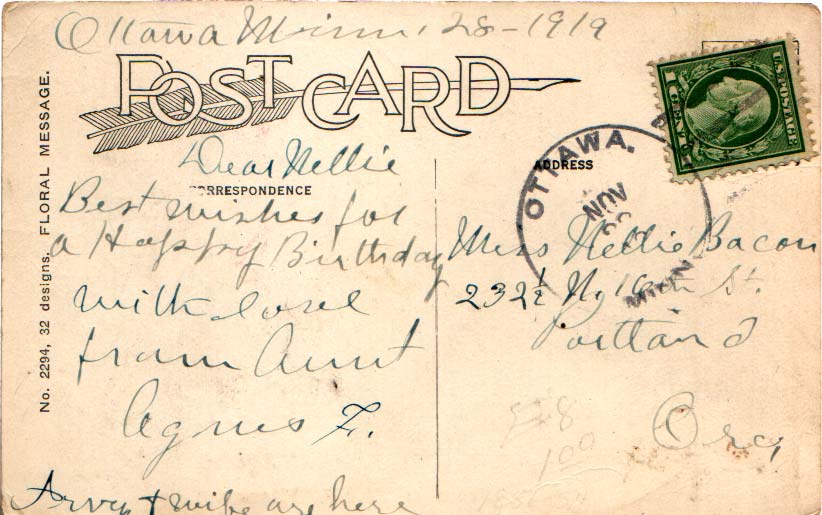 Ottawa Minn, 28-1919
POST CARD
No. 2294, 32 designs. FLORAL MESSAGE.
Dear Nellie
CORRESPONDENCE
Best wishes for
a Happy Birthday
with love
from Aunt
Agnes F.
& wife are here
ADDRESS
OTTAWA.
NOV
MINN
U.S. POSTAGE
Miss Nellie Bacon
232½ N. 16th St.
Portland
Ore,
528
1 00